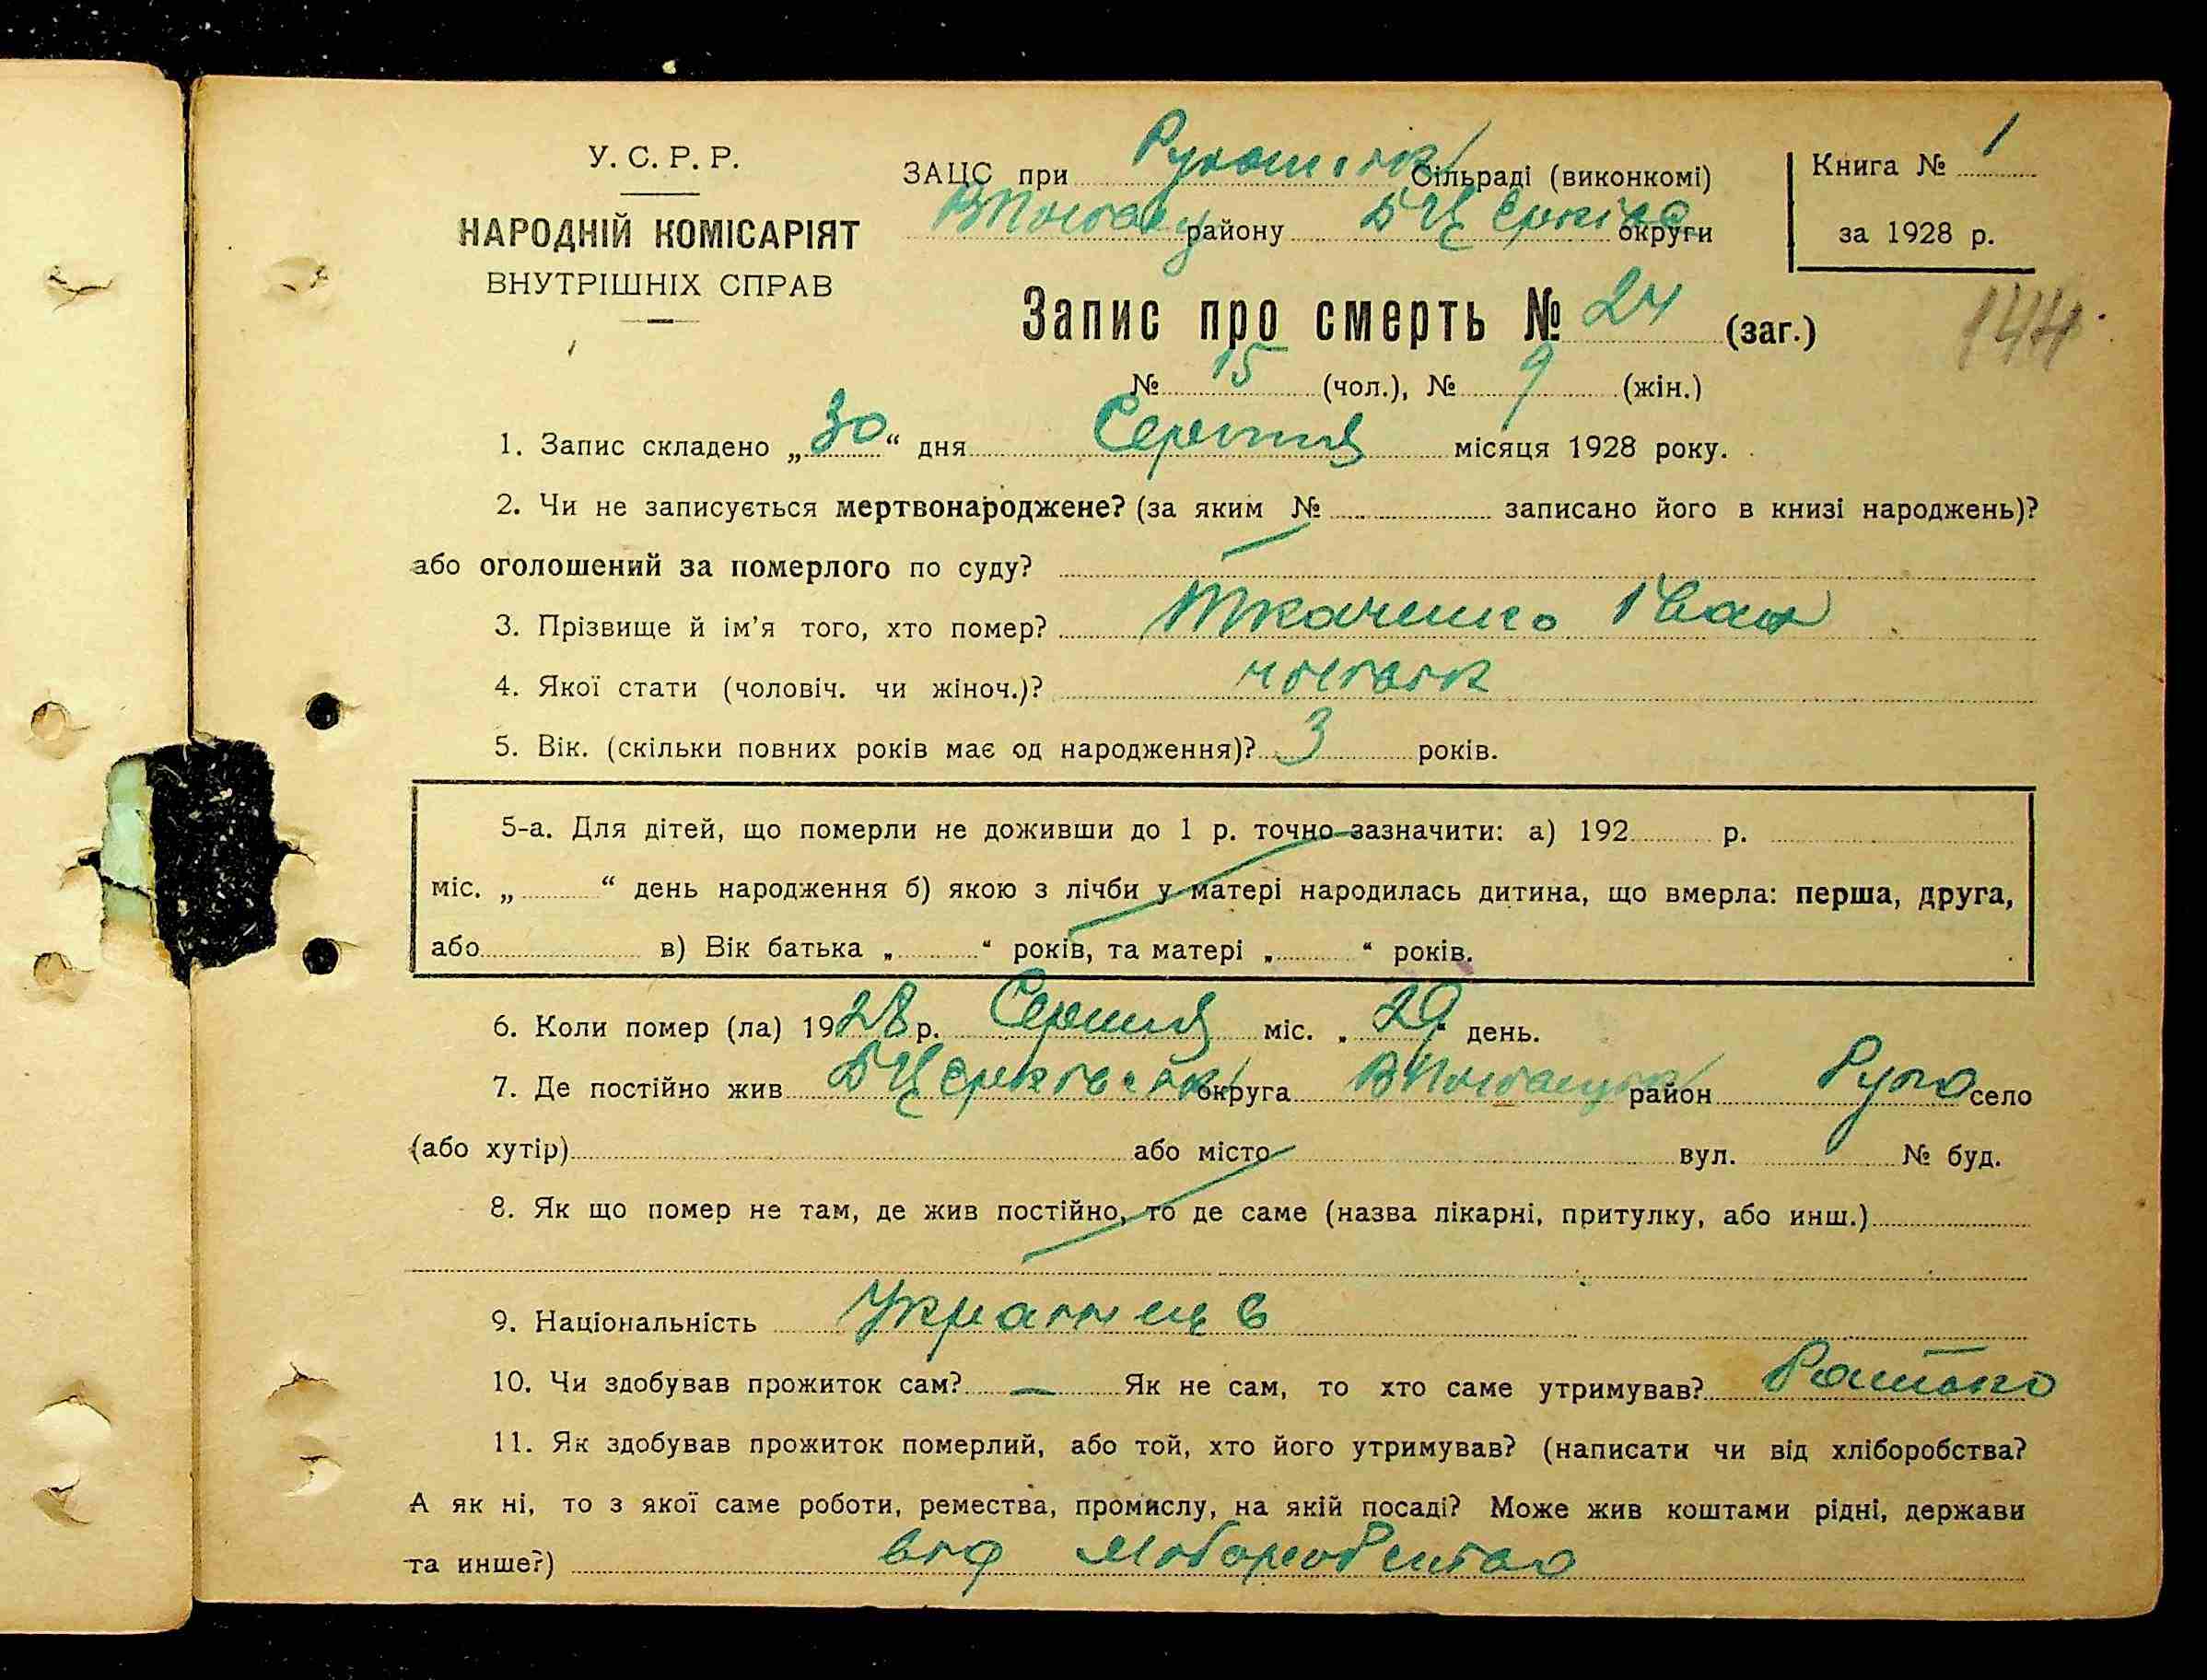 У. С. Р. Р.
НАРОДНІЙ КОМІСАРІЯТ
ВНУТРІШНІХ СПРАВ
ЗАЦС при Сільраді (виконкомі)
району БЦерків округи
Книга № 1
за 1928 р.
144
Запис про смерть № 24 (заг.)
№ 15 (чол.), № 9 (жін.)
1. Запис складено „30“ дня Серпня місяця 1928 року.
2. Чи не записується мертвонароджене? (за яким № записано його в книзі народжень)?
або оголошений за померлого по суду?
3. Прізвище й ім'я того, хто помер? Ткаченко Іван
4. Якої стати (чоловіч. чи жіноч.)?
5. Вік. (скільки повних років має од народження)? 3 років.
5-а. Для дітей, що померли не доживши до 1 р. точно зазначити: а) 192 р.
міс. „ “ день народження б) якою з лічби у матері народилась дитина, що вмерла: перша, друга,
або в) Вік батька „ “ років, та матері „ “ років.
6. Коли помер (ла) 1928 р. Серпня міс. „29“ день.
7. Де постійно жив округа район село
(або хутір) або місто вул. № буд.
8. Як що помер не там, де жив постійно, то де саме (назва лікарні, притулку, або инш.)
9. Національність
10. Чи здобував прожиток сам? — Як не сам, то хто саме утримував? Батько
11. Як здобував прожиток померлий, або той, хто його утримував? (написати чи від хліборобства?
А як ні, то з якої саме роботи, ремества, промислу, на якій посаді? Може жив коштами рідні, держави
та инше?) від хліборобства